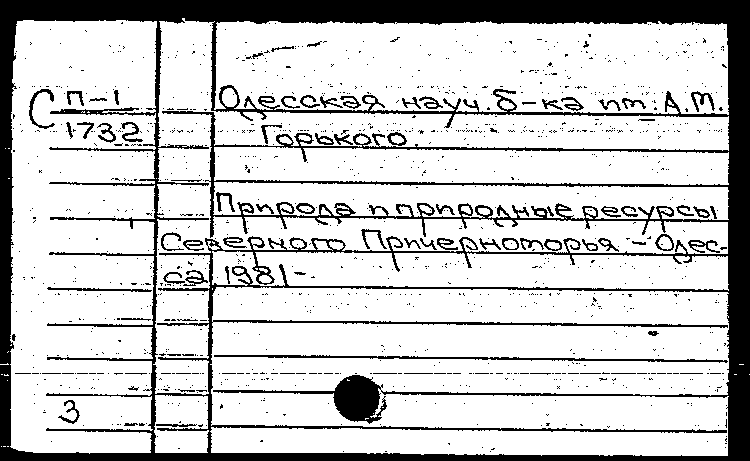 С П-1
1732
Одесская науч. б-ка им. А.М.
Горького.
Природа и природные ресурсы
Северного Причерноморья. - Одес-
са, 1981-
3